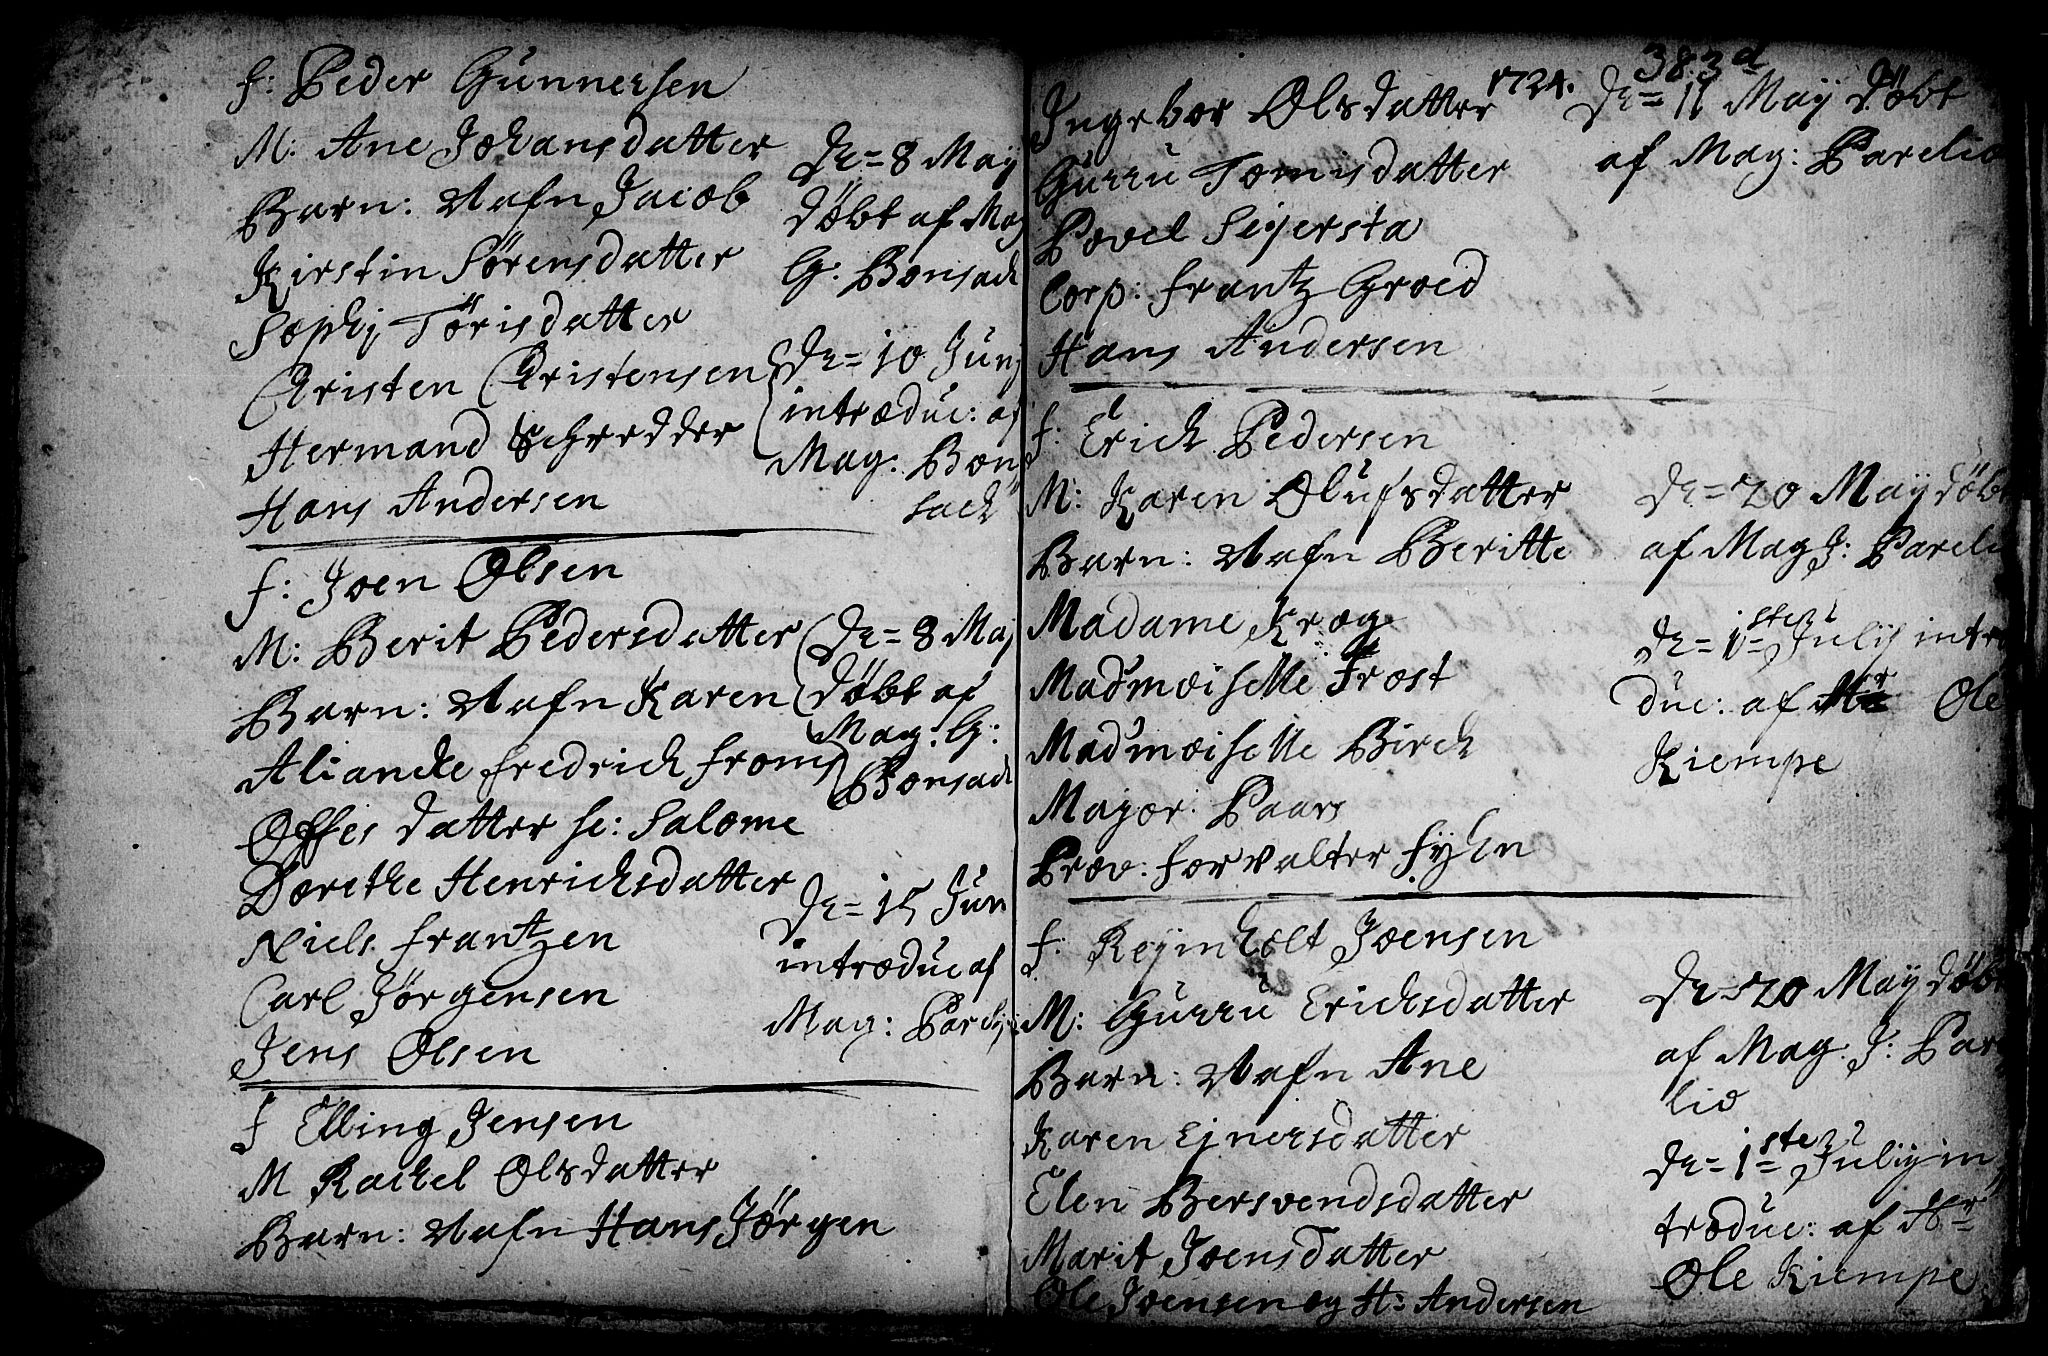 f: Peder Gunnersen
M: Ane Johansdatter
Barn: Nafn Jacob
Kirstin Sörensdatter
Sophij Törisdatter
Christen Christensen
Hermand Schredder
Hans Andersen
De = 8 May
döbt af Mag
G: Bonsack
De = 10 Junj
introduc: af
Mag: Bon
sack
f: Joen Olsen
M: Berit Pedersdatter
Barn: Nafn Karen
Aliancke Fredrich Froms
Offes datter sc: Salome
Dorethe Henrichsdatter
Niels Frantzen
Carl Jörgensen
Jens Olsen
De = 8 Maj
döbt af
Mag: G:
Bonsack
De = 15 Jun
introduc af
Mag:
f Elling Jensen
M Rachel Olsdatter
Barn: Nafn Hans Jörgen
1724.
383
Ingebor Olsdatter
Gurru Tomisdatter
Povel Sejersta
Corp: Frantz Groed
Hans Andersen
De = 11 Maij döbt
af Mag: Parelio
f: Erick Pedersen
M: Karen Olufsdatter
Barn: Nafn Beritte
Madame Krog
Madmoiselle Frost
Madmoiselle Birck
Major: Paars
Prov: forvalter Fyhn
De = 20 Maij döbt
af Mag J: Pareli
De = 1ste Julij intro
duc: af Hr Ole
Kiempe
f: Reijnholt Joensen
M: Gurru Ericksdatter
Barn: Nafn Ane
Karen Ejnersdatter
Elen Bersvendsdatter
Marit Joensdatter
Ole Joensen og H: Andersen
De = 20 Maij döbt
af Mag: J: Pare
lio
De = 1ste Julij in
troduc: af Hr
Ole Kiempe